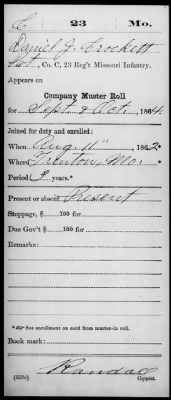 C 23 Mo.
Daniel J. Crockett
Co. C, 23 Reg't Missouri Infantry.
Appears on
Company Muster Roll
for Sept & Oct, 1864.
Joined for duty and enrolled:
When Aug. 11, 1862.
Where Trenton, Mo. *
Period 3 years.*
Present or absent Present
Stoppage, $ 100 for
Due Gov't $ 100 for
Remarks:
* See enrollment on card from muster-in roll.
Book mark:
Randall
(358c) Copyist.